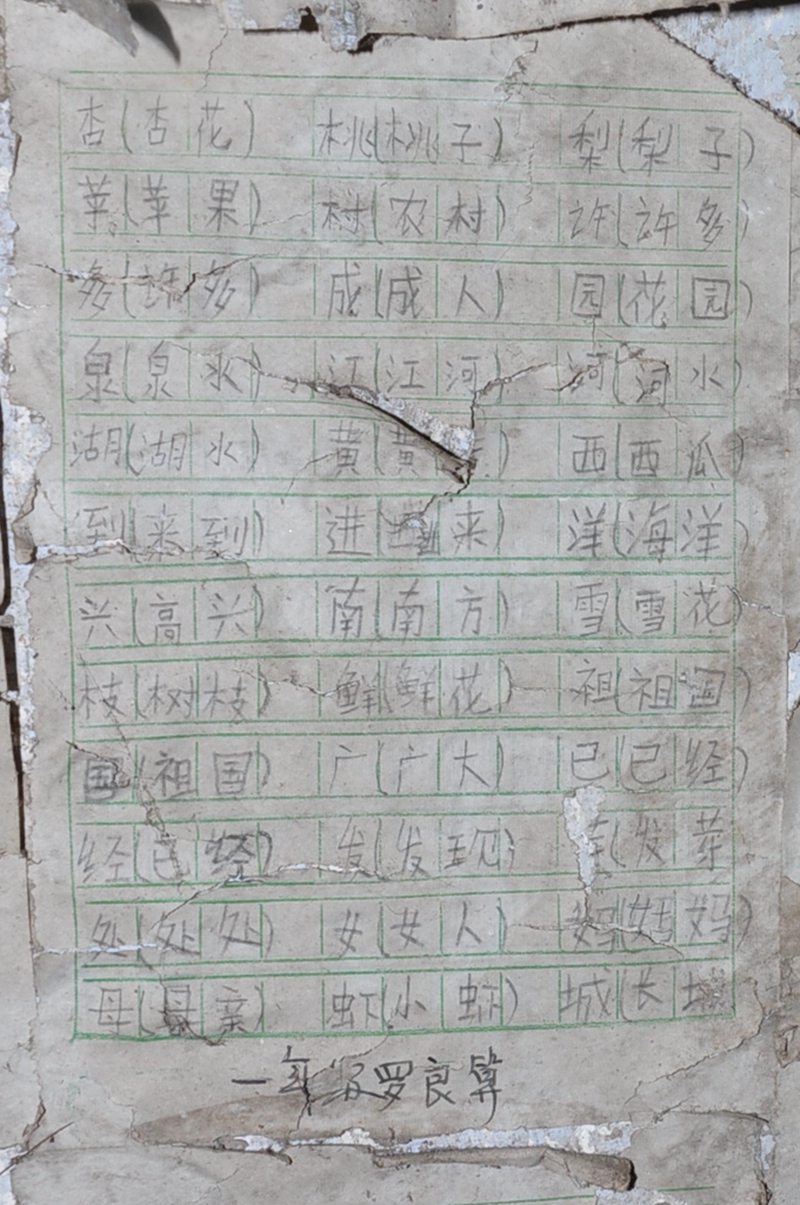 杏(杏花) 桃(桃子) 梨(梨子)
苹(苹果) 村(农村) 許(許多)
多(許多) 成(成人) 园(花园)
泉(泉水) 江(江河) 河(河水)
湖(湖水) 黄(黄 ) 西(西瓜)
到(来到) 进(进来) 洋(海洋)
兴(高兴) 南(南方) 雪(雪花)
枝(树枝) 鲜(鲜花) 祖(祖国)
国(祖国) 广(广大) 已(已经)
经(已经) 发(发现) (发芽
处(处处) 女(女人) 妈(姑妈)
母(母亲) 虾(小虾) 城(长城
一年级罗良算